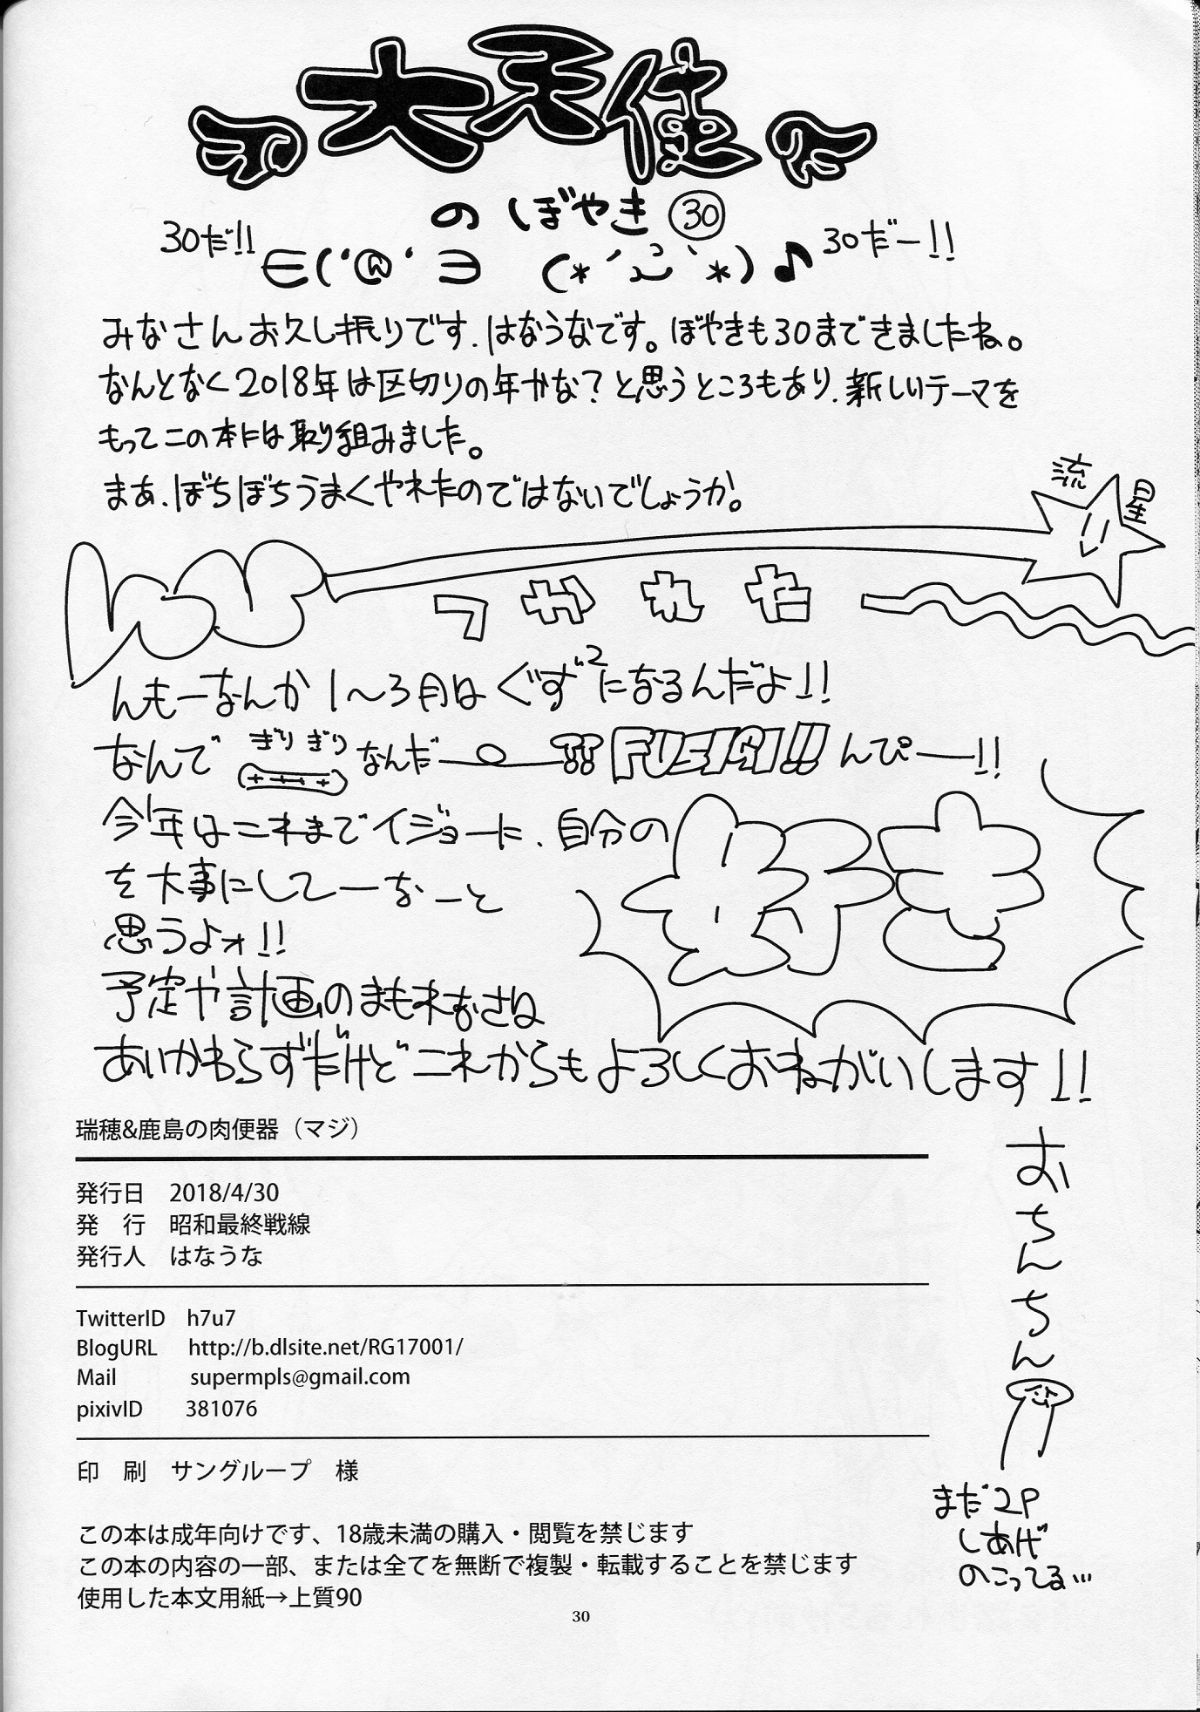 大天使
のぼやき㉚
30だ!!
30だー!!
みなさんお久し振りです、はなうなです。ぼやきも30まできましたね。
なんとなく2018年は区切りの年かな?と思うところもあり、新しいテーマを
もってこの本は取り組みました。
まあ、ぼちぼちうまくやれたのではないでしょうか。
流星
つかれた
んもーなんか1〜3月はぐず²になるんだよ!!
なんでぎりぎりなんだー FUSIGI!! んぴー!!
今年はこれまでイジョーに、自分の好き
を大事にしてーなーと
思うよォ!!
予定や計画のまもれなさね
あいかわらずだけどこれからもよろしくおねがいします!!
おちんちん
まだ2P
しあげ
のこってる…
瑞穂&鹿島の肉便器（マジ）
発行日 2018/4/30
発 行 昭和最終戦線
発行人 はなうな
TwitterID h7u7
BlogURL http://b.dlsite.net/RG17001/
Mail supermpls@gmail.com
pixivID 381076
印 刷 サングループ 様
この本は成年向けです、18歳未満の購入・閲覧を禁じます
この本の内容の一部、または全てを無断で複製・転載することを禁じます
使用した本文用紙→上質90
30